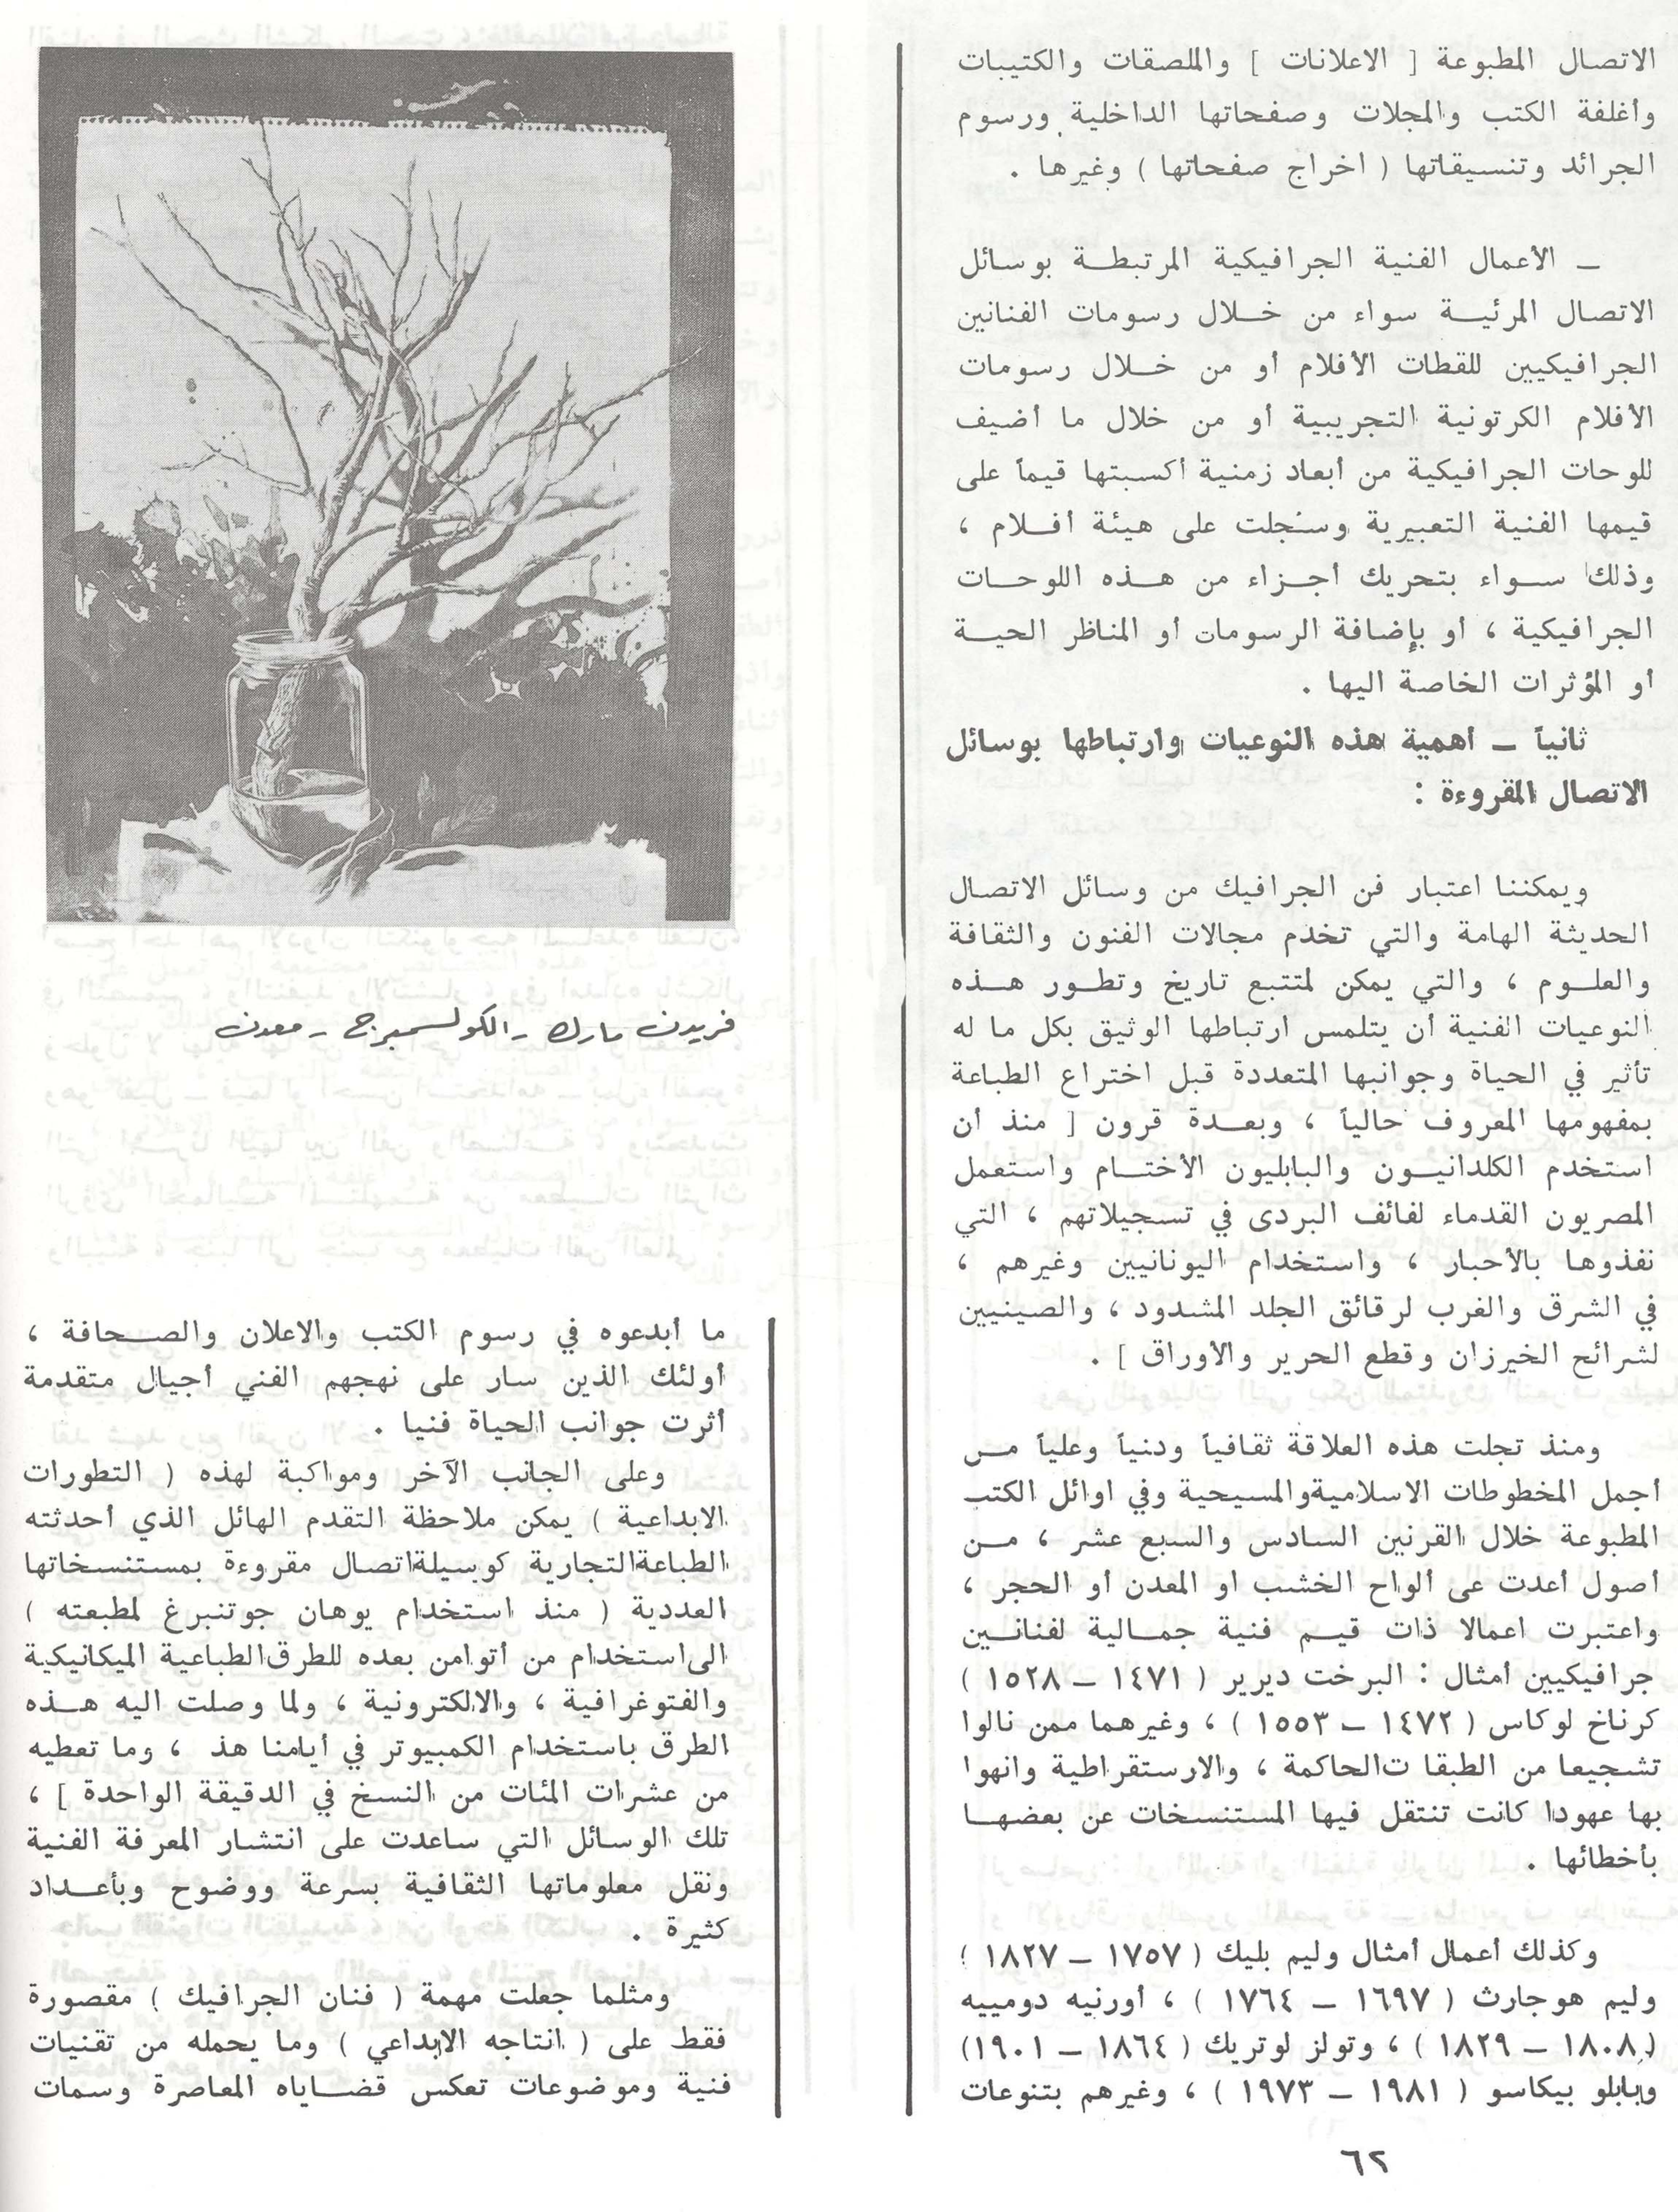 الاتصال المطبوعة [ الاعلانات ] والملصقات والكتيبات
وأغلفة الكتب والمجلات وصفحاتها الداخلية ورسوم
الجرائد وتنسيقاتها ( اخراج صفحاتها ) وغيرها .
ـ الأعمال الفنية الجرافيكية المرتبطة بوسائل
الاتصال المرئية سواء من خلال رسومات الفنانين
الجرافيكيين للقطات الأفلام أو من خلال رسومات
الأفلام الكرتونية التجريبية أو من خلال ما أضيف
للوحات الجرافيكية من أبعاد زمنية أكسبتها قيماً على
قيمها الفنية التعبيرية وسُجلت على هيئة أفلام ،
وذلك سواء بتحريك أجزاء من هذه اللوحات
الجرافيكية ، أو بإضافة الرسومات أو المناظر الحية
أو المؤثرات الخاصة اليها .
ثانياً ـ أهمية هذه النوعيات وارتباطها بوسائل
الاتصال المقروءة :
ويمكننا اعتبار فن الجرافيك من وسائل الاتصال
الحديثة الهامة والتي تخدم مجالات الفنون والثقافة
والعلوم ، والتي يمكن لمتتبع تاريخ وتطور هذه
النوعيات الفنية أن يتلمس ارتباطها الوثيق بكل ما له
تأثير في الحياة وجوانبها المتعددة قبل اختراع الطباعة
بمفهومها المعروف حالياً ، وبعدة قرون [ منذ أن
استخدم الكلدانيون والبابليون الأختام واستعمل
المصريون القدماء لفائف البردى في تسجيلاتهم ، التي
نفذوها بالأحبار ، واستخدام اليونانيين وغيرهم ،
في الشرق والغرب لرقائق الجلد المشدود ، والصينيين
لشرائح الخيرزان وقطع الحرير والأوراق ] .
ومنذ تجلت هذه العلاقة ثقافياً ودنياً وعلياً من
أجمل المخطوطات الاسلامية والمسيحية وفي اوائل الكتب
المطبوعة خلال القرنين السادس والسبع عشر ، من
أصول أعدت عى ألواح الخشب او المعدن أو الحجر ،
واعتبرت اعمالا ذات قيم فنية جمالية لفنانين
جرافيكيين أمثال : البرخت ديرير ( ١٤٧١ ـ ١٥٢٨ )
كرناخ لوكاس ( ١٤٧٢ ـ ١٥٥٣ ) ، وغيرهما ممن نالوا
تشجيعا من الطبقا ت الحاكمة ، والارستقراطية وانهوا
بها عهودا كانت تنتقل فيها المستنسخات عن بعضها
بأخطائها .
وكذلك أعمال أمثال وليم بليك ( ١٧٥٧ ـ ١٨٢٧ ؛
وليم هوجارث ( ١٦٩٧ ـ ١٧٦٤ ) ، أورنيه دومييه
( ١٨٠٨ ـ ١٨٢٩ ) ، وتولز لوتريك ( ١٨٦٤ ـ ١٩٠١ )
وبابلو بيكاسو ( ١٩٨١ ـ ١٩٧٣ ) ، وغيرهم بتنوعات
فريدن مارك - الكولسمبرج - معدن
ما أبدعوه في رسوم الكتب والاعلان والصحافة ،
أولئك الذين سار على نهجهم الفني أجيال متقدمة
أثرت جوانب الحياة فنيا .
وعلى الجانب الآخر ومواكبة لهذه ( التطورات
الابداعية ) يمكن ملاحظة التقدم الهائل الذي أحدثته
الطباعة التجارية كوسيلة اتصال مقروءة بمستنسخاتها
العددية ( منذ استخدام يوهان جوتنبرغ لمطبعته )
الى استخدام من أتوا من بعده للطرق الطباعية الميكانيكية
والفتوغرافية ، والالكترونية ، ولما وصلت اليه هذه
الطرق باستخدام الكمبيوتر في أيامنا هذ ، وما تعطيه
من عشرات المئات من النسخ في الدقيقة الواحدة ] ،
تلك الوسائل التي ساعدت على انتشار المعرفة الفنية
ونقل معلوماتها الثقافية بسرعة ووضوح وبأعداد
كثيرة .
ومثلما جعلت مهمة ( فنان الجرافيك ) مقصورة
فقط على ( انتاجه الابداعي ) وما يحمله من تقنيات
فنية وموضوعات تعكس قضاياه المعاصرة وسمات
٦٢